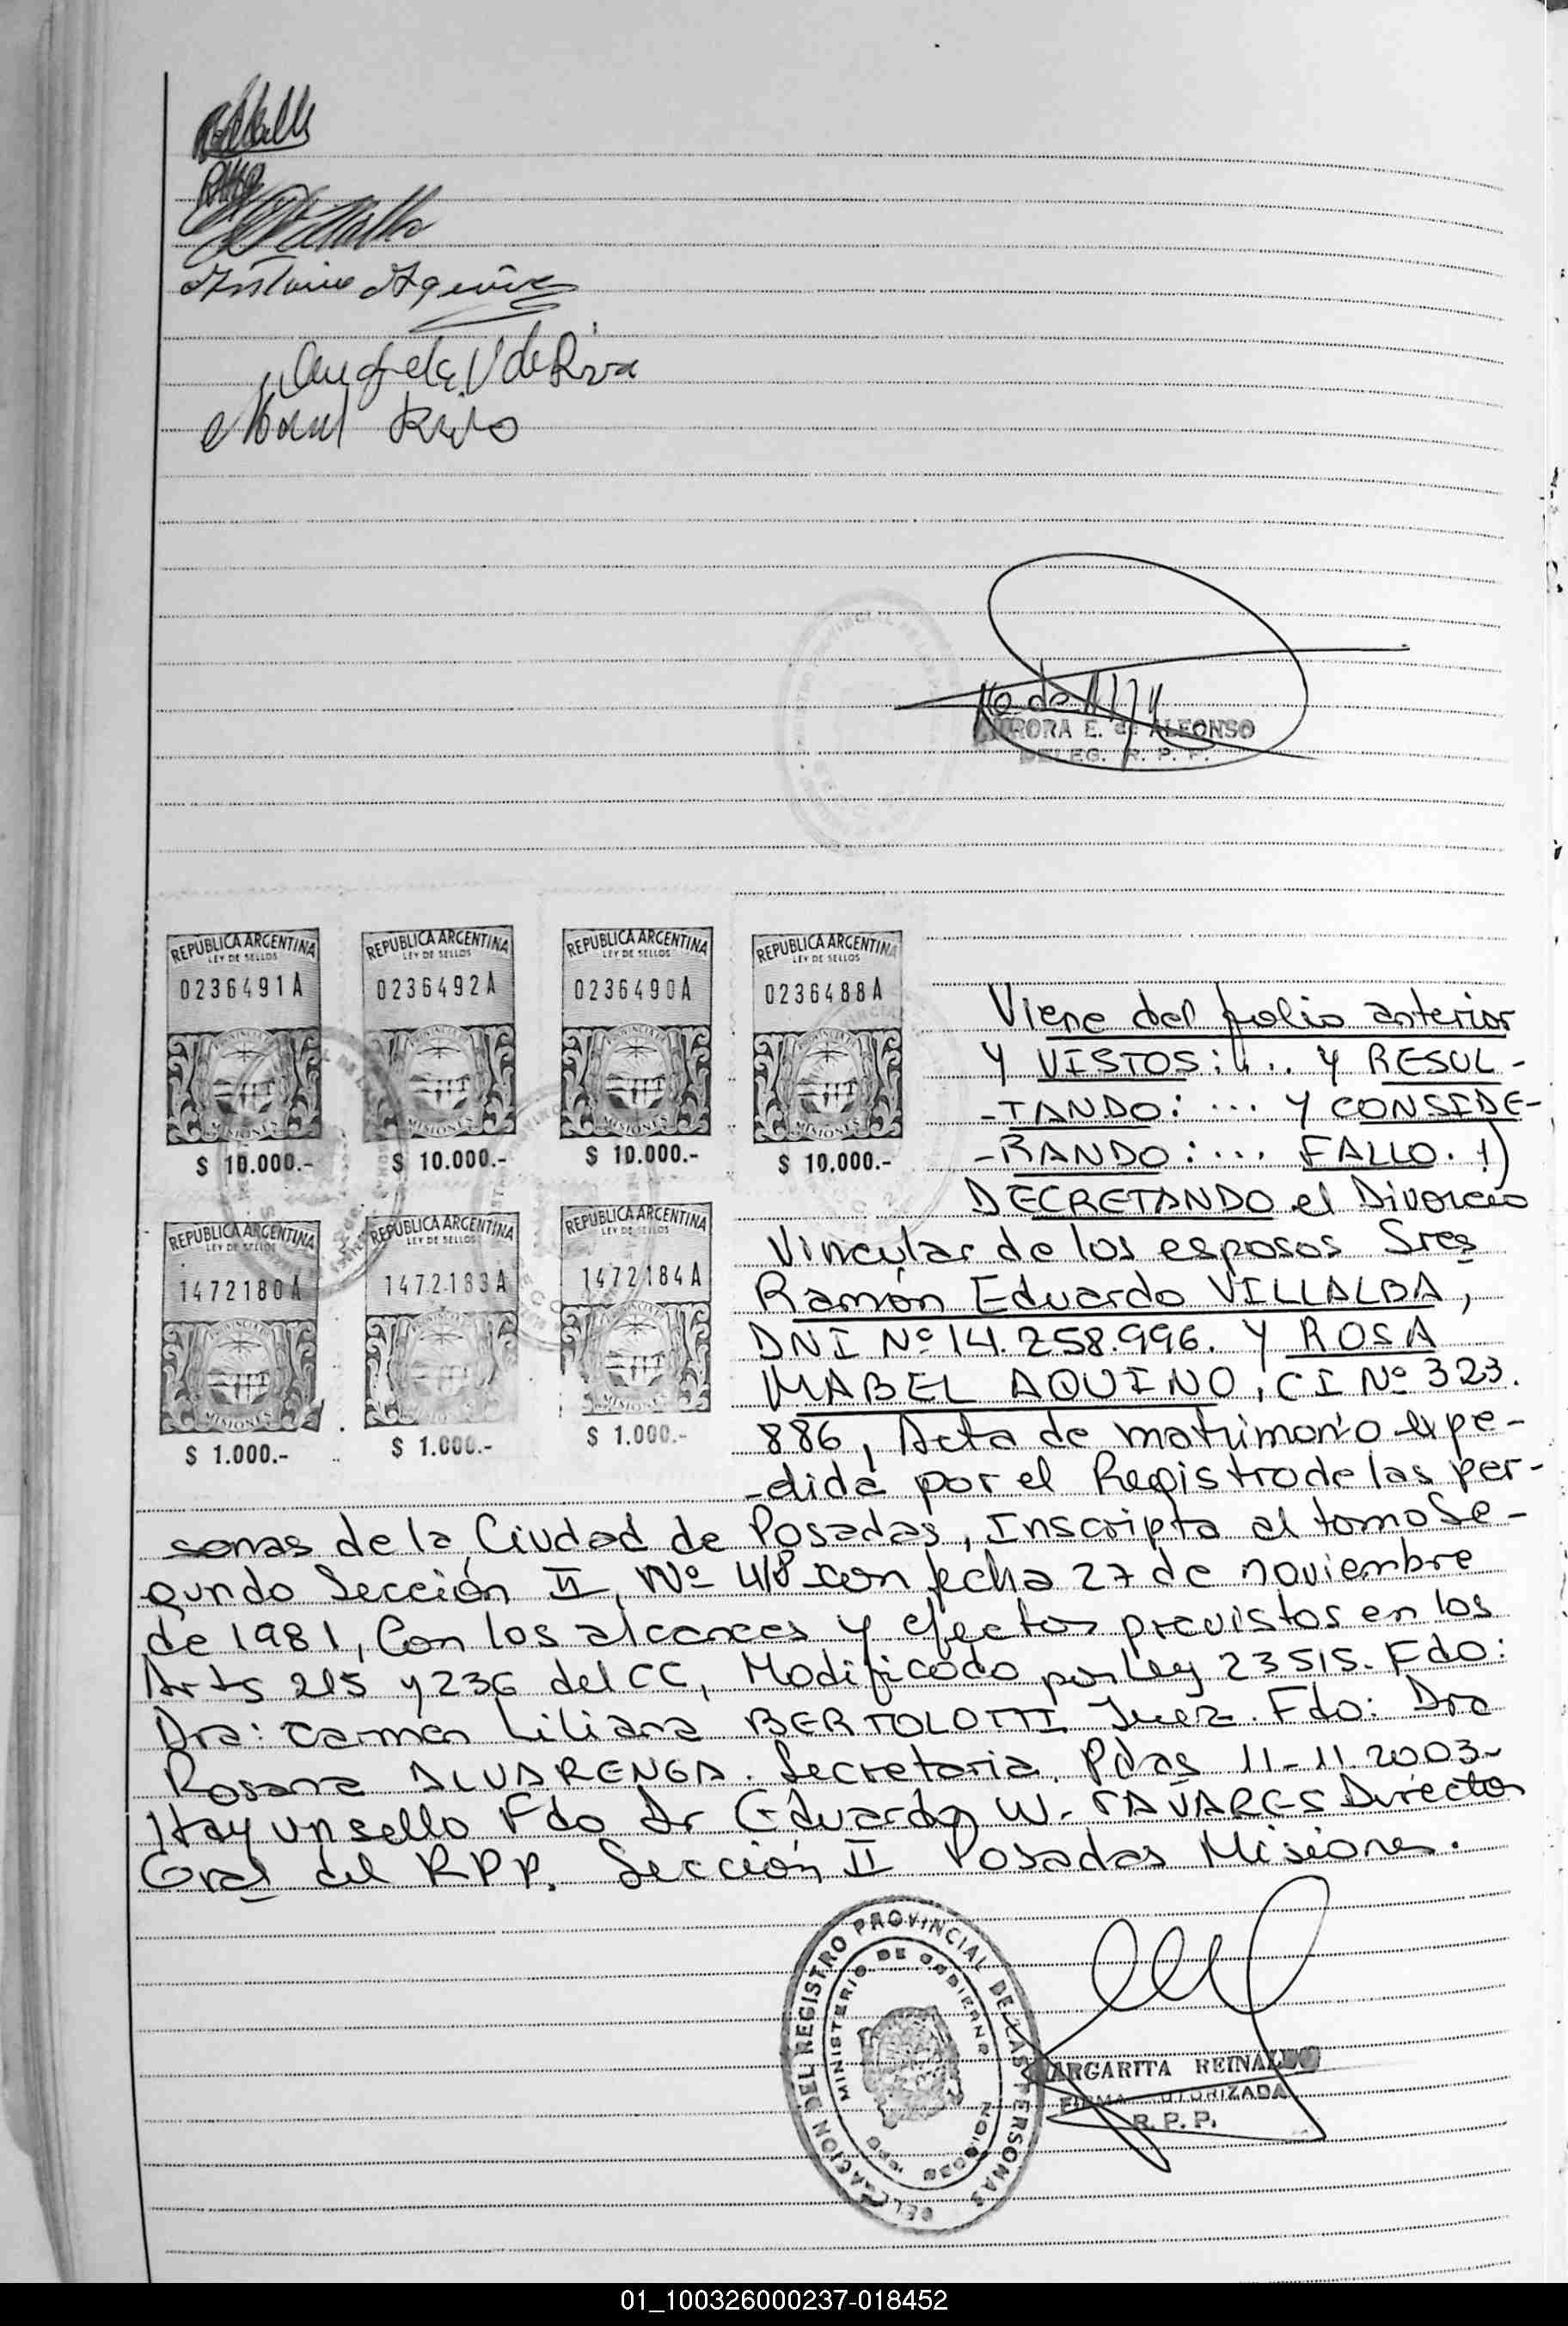 Antonio Aquino
Angela V de Riva
AURORA E. de ALFONSO
DELEG. R. P. P.
REPUBLICA ARGENTINA REPUBLICA ARGENTINA REPUBLICA ARGENTINA REPUBLICA ARGENTINA
LEY DE SELLOS LEY DE SELLOS LEY DE SELLOS LEY DE SELLOS
0236491A 0236492A 0236490A 0236488A
MISIONES MISIONES MISIONES MISIONES
$ 10.000.- $ 10.000.- $ 10.000.- $ 10.000.-
REPUBLICA ARGENTINA REPUBLICA ARGENTINA REPUBLICA ARGENTINA
LEY DE SELLOS LEY DE SELLOS LEY DE SELLOS
1472180A 1472183A 1472184A
MISIONES MISIONES MISIONES
$ 1.000.- $ 1.000.- $ 1.000.-
Viene del folio anterior
Y VISTOS:... Y RESUL-
-TANDO: ... Y CONSIDE-
-RANDO: ... FALLO. 1)
DECRETANDO el Divorcio
Vincular de los esposos Sres
Ramón Eduardo VILLALBA,
DNI Nº 14.258.996. Y ROSA
MABEL AQUINO, CI Nº 323.
886, Acta de matrimonio expe-
-dida por el Registro de las per-
sonas de la Ciudad de Posadas, Inscripta al tomo Se-
gundo Sección II, Nº 418 con fecha 27 de noviembre
de 1981, Con los alcances y efectos previstos en los
Arts 215 y 236 del CC, Modificado por Ley 23515. Fdo:
Dra: Carmen Liliana BERTOLOTTI Juez. Fdo: Dra
Rosana ALVARENGA. Secretaria. Pdas 11-11.2003-
Hay un sello Fdo Dr Eduardo W. TAVARES Director
Gral del RPP. Sección II Posadas Misiones.
DELEGACION DEL REGISTRO PROVINCIAL DE LAS PERSONAS
MINISTERIO DE GOBIERNO
MARGARITA REINALDO
FIRMA AUTORIZADA
R. P. P.
01_100326000237-018452